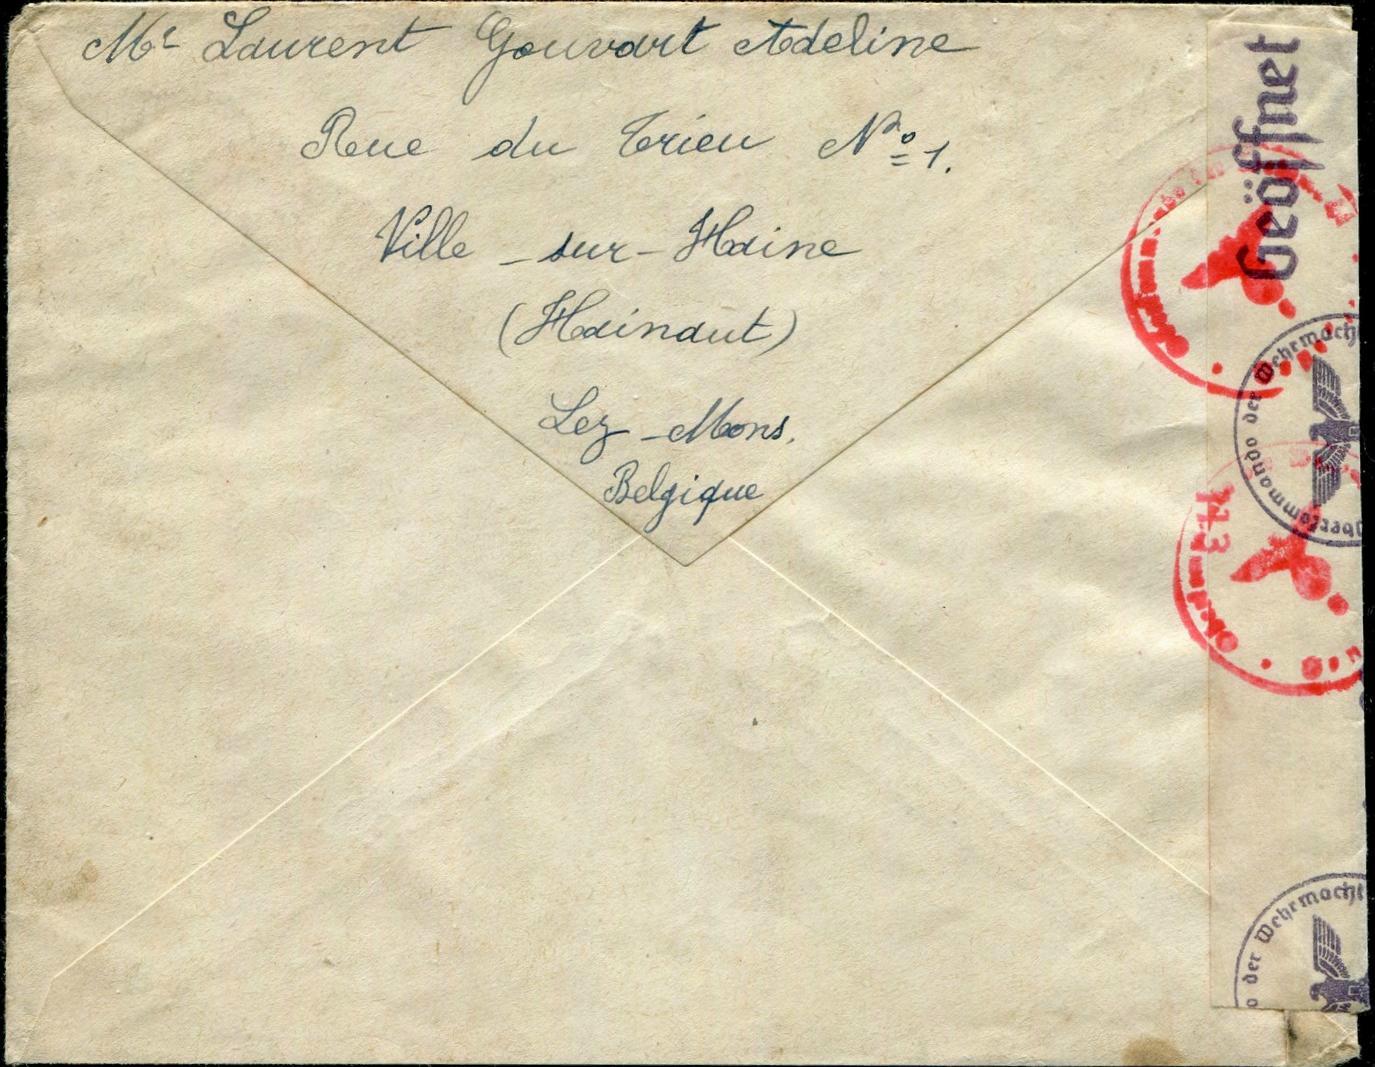 Mr Laurent Gouvart Adeline
Rue du Trieu No 1.
Ville - sur - Haine
(Hainaut)
Lez - Mons.
Belgique
Geöffnet
Oberkommando der Wehrmacht
173
o der Wehrmacht